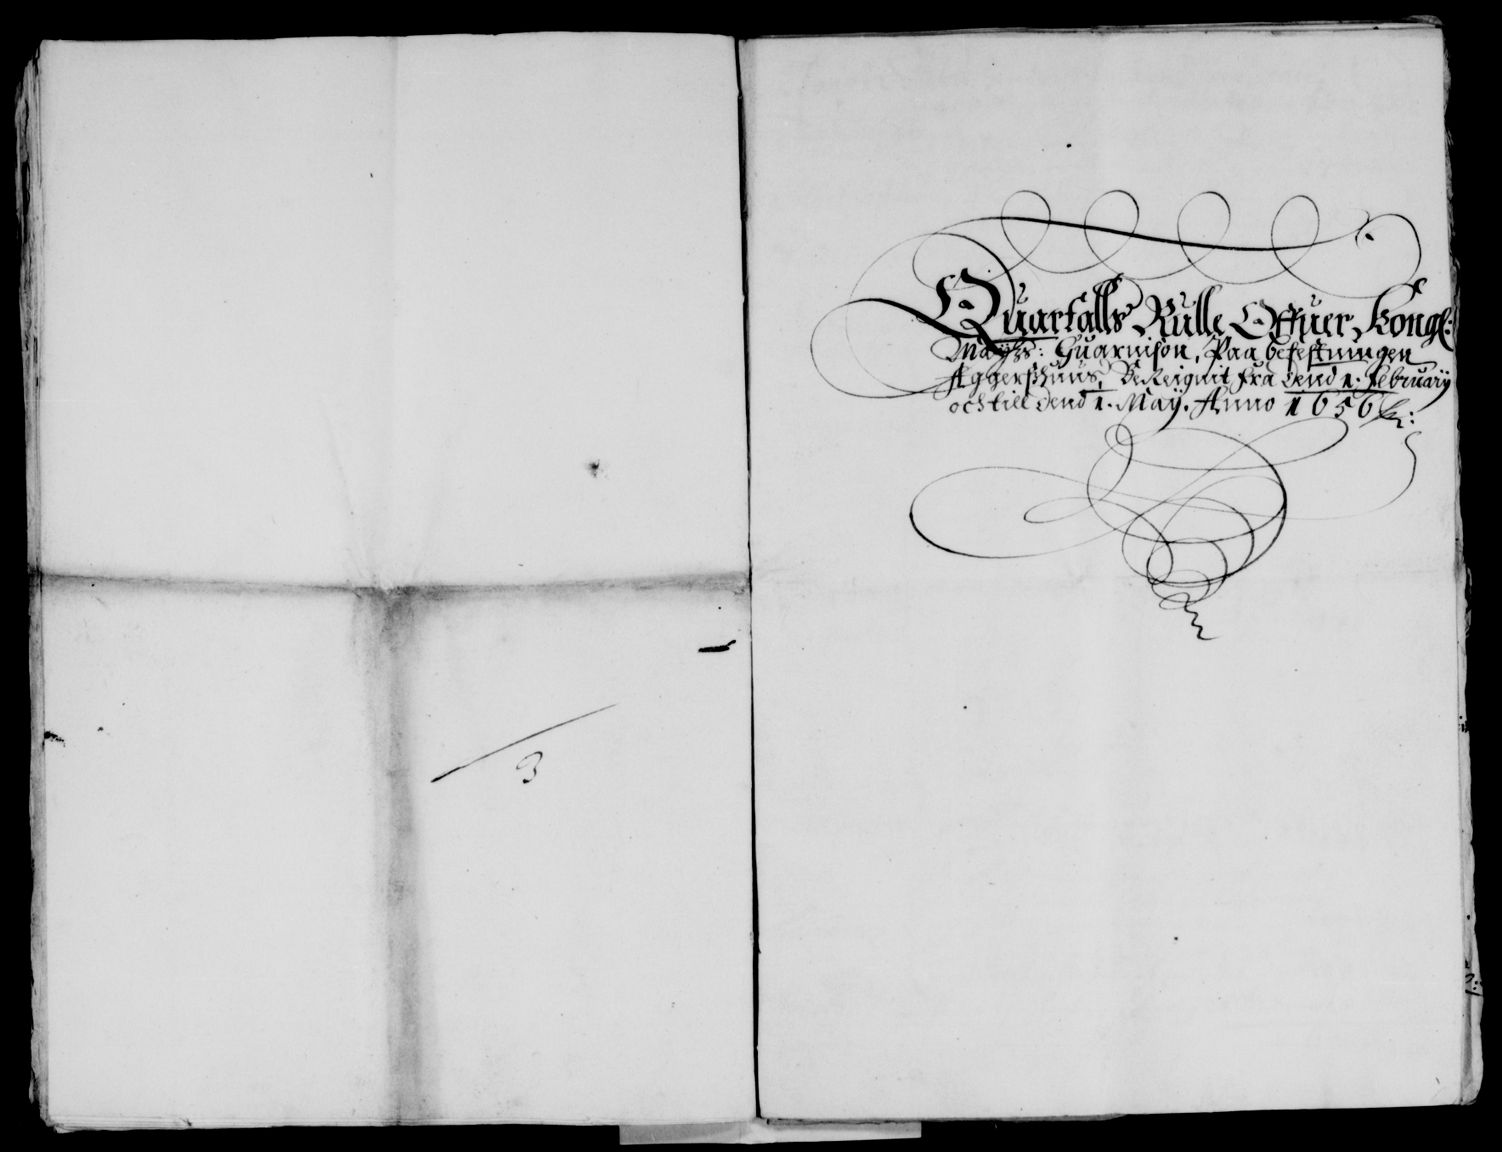 3
Quartalls Rulle Offuer Kongl:
Maÿtzs: Guarnison, Paa befestningen
Aggershuus, Bereignit fra dend 1. Februarÿ
och till dend 1. Maÿ. Anno 1656